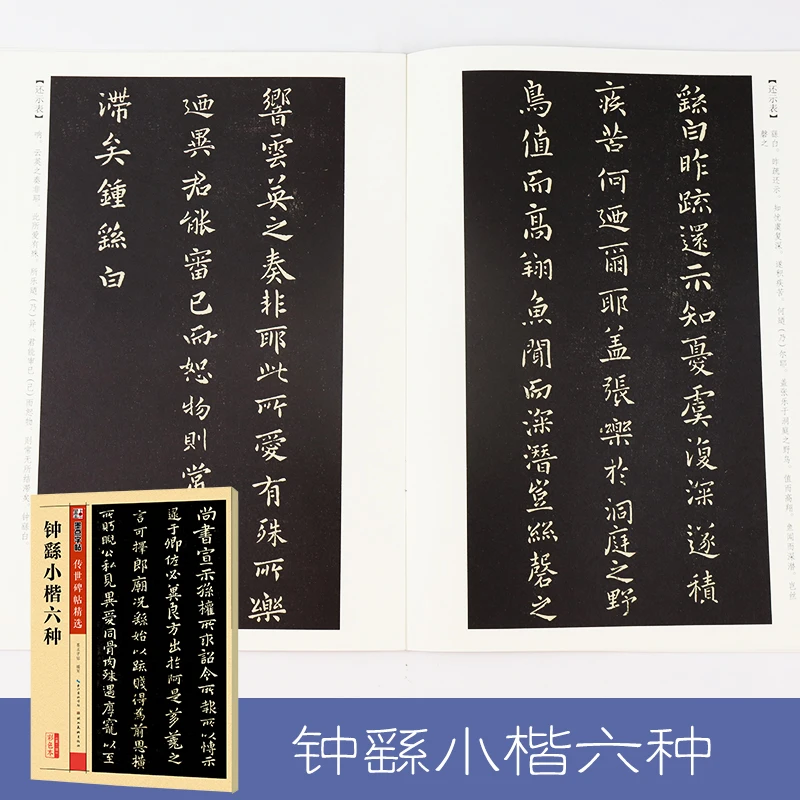 【还示表】
繇白昨疏還示知憂虞復深遂積
疾苦何迺爾耶盖張樂於洞庭之野
鳥值而高翔魚聞而深潛豈絲磬之
【还示表】
響雲英之奏非耶此所愛有殊所樂
迺異君能審已而恕物則常
滯矣鍾繇白
墨点字帖
传世碑帖精选
钟繇小楷六种
彩色本
尚書宣示孫權所求詔令所報所以博示
逮于卿佐必冀良方出於阿是芻蕘之
言可擇郎廟況繇始以疏賤得為前恩橫
所盻睨公私見異愛同骨肉殊遇厚寵以至
钟繇小楷六种